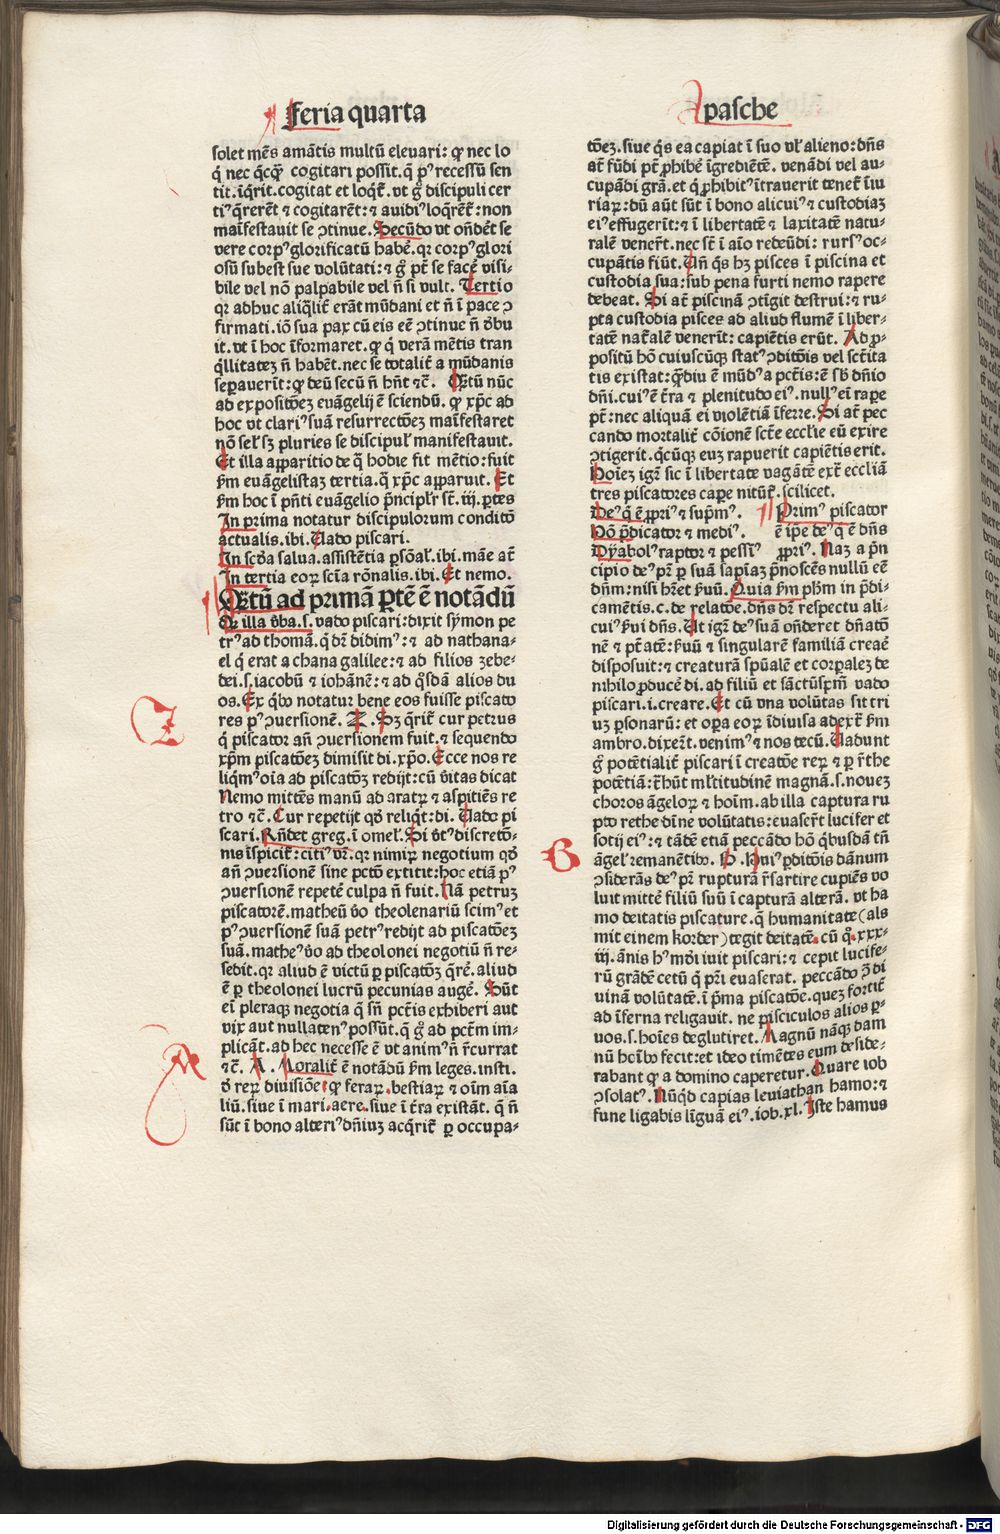 feria quarta
pasche
solet mēs amātis multū eleuari: qꝛ nec lo
q̄ nec q̄cq̄ cogitari possit. q̄ pꝰ recessū sen
tit. īq̄rit. cogitat et loq̄t̄. vt g̊ discipuli cer
tiꝰ q̄rerēt ⁊ cogitarēt: ⁊ auidiꝰ loq̄rēt̄: non
maīfestauit se ꝯtinue. Secūdo vt oñdēt se
vere corpꝰ glorificatū habē. qꝛ corpꝰ glori
osū subest sue volūtati: ⁊ g̊ pt̄ se facē visi-
bile vel nō palpabile vel ñ si vult. Tertio
qꝛ adhuc aliq̄lit̄ erāt mūdani et ñ ī pace ꝯ
firmati. iō sua pax cū eis eē ꝯtinue ñ dꝫbu
it. vt ī hoc īformaret. qꝛ q̄ verā mētis tran
q̄llitatez ñ habēt. nec se totalit̄ a mūdanis
seꝑauerīt: qꝛ deū secū ñ hñt ⁊c̄. Qꝛtū nūc
ad expositōez euāgelij ē sciendū. qꝛ xp̄c ad
hoc vt clariꝰ suā resurrectōez maīfestaret
nō sel̄ sꝫ pluries se discipul̄ manifestauit.
Et illa apparitio de q̄ hodie fit mētio: fuit
ẜm euāgelistaꝫ tertia. q̄ xp̄c apparuit. Et
ẜm hoc ī pñti euāgelio p̄ncipl̄r st̄. iij. ꝑtes
In prima notatur discipulorum conditō
actualis. ibi. Uado piscari.
In scd̄a salua. assistētia ꝑsōal̄. ibi. māe at̄
In tertia eoꝝ scīa rōnalis. ibi. Et nemo.
Qꝛtū ad primā ꝑtē ē notādū
Qꝛ illa vba. s. vado piscari: dixit symon pe
trꝰ ad thomā. q̄ dꝛ didimꝰ: ⁊ ad nathana-
el q̄ erat a chana galilee: ⁊ ad filios zebe-
dei. s. iacobū ⁊ iohānē: ⁊ ad q̄sdā alios du
os. Ex q̄bꝰ notatur bene eos fuisse piscato
res pꝰ ꝯuersionē. Z. Sꝫ q̄rit̄ cur petrus
q̄ piscator añ ꝯuersionem fuit. ⁊ sequendo
xp̄m piscatōez dimisit di. xp̄o. Ecce nos re
liq̄mꝰ oīa ad piscatōꝫ redijt: cū v̄itas dicat
Nemo mittēs manū ad aratꝝ ⁊ aspitiēs re
tro ⁊c̄. Cur repetijt qd̄ reliq̄t: di. Uado pi
scari. Rñdet greg. ī omel̄. Si v̄tꝰ discretō-
nis īspicit̄: citiꝰ vꝛ. qꝛ nimiꝝ negotium qd̄
añ ꝯuersionē sine pctō extitit: hoc etiā pꝰ
ꝯuersionē repetē culpa ñ fuit. Nā petruꝫ
piscatorē. matheū v̄o theolenariū scimꝰ et
pꝰ ꝯuersionē suā petrꝰ redijt ad piscatōez
suā. matheꝰ v̄o ad theolonei negotiū ñ re-
sedit. qꝛ aliud ē victū ꝑ piscatōꝫ q̄rē. aliud
ē ꝑ theolonei lucrū pecunias augē. Sūt
eī pleraqꝫ negotia q̄ sñ pct̄is exhiberi aut
vix aut nullatenꝰ possūt. q̄ g̊ ad pctm̄ im-
plicāt. ad hec necesse ē vt animꝰ ñ r̄currat
⁊c̄. A. Moralit̄ ē notādū ẜm leges. insti.
d̄ reꝝ diuisiōe qꝛ feraꝝ. bestiaꝝ ⁊ oīm aīa
liū. siue ī mari. aere. siue ī t̄ra existāt. q̄ ñ
sūt ī bono alteriꝰ dñiuꝫ acq̄rit̄ ꝑ occupa-
tōez. siue q̄s ea capiat ī suo vl̄ alieno: dñs
at̄ fūdi pt̄ ꝓhibē īgrediētē. venādi vel au-
cupādi grā. et q̄ ꝓhibitꝰ ītrauerit tenet̄ īiu
riaꝝ: dū aūt sūt ī bono alicuiꝰ ⁊ custodiaꝫ
eiꝰ effugerīt: ⁊ ī libertatē ⁊ laxitatē natu-
ralē venerīt. nec st̄ ī aīo redeūdi: rursꝰ oc-
cupātis fiūt. Uñ q̄s hꝫ pisces ī piscina et
custodia sua: sub pena furti nemo rapere
debeat. Si at̄ piscinā ꝯtigit destrui: ⁊ ru-
pta custodia pisces ad aliud flumē ī liber-
tatē nat̄alē venerīt: capiētis erūt. Ad ꝓ-
positū hō cuiuscūqꝫ statꝰ ꝯditōis vel sct̄ita
tis existat: q̄diu ē mūdꝰ a pct̄is: ē sb̄ dñio
dñi. cuiꝰ ē t̄ra ⁊ plenitudo eiꝰ. nullꝰ eī rape
pt̄: nec aliquā ei violētiā īferre. Si at̄ pec
cando mortalit̄ cōionē sct̄e eccl̄ie eū exire
ꝯtigerit. q̄cūqꝫ euꝫ rapuerit capiētis erit.
Hoīez igꝝ sic ī libertate vagātē ext̄ eccliā
tres piscatores capere nitūt̄. scilicet.
Deꝰ q̄ ē ꝓpriꝰ ⁊ sup̄mꝰ. Primꝰ piscator
Hō p̄dicator ⁊ mediꝰ. ē ip̄e deꝰ q̄ ē dñs
Dyabolꝰ raptor ⁊ pessīꝰ ꝓpriꝰ. Naꝫ a p̄n
cipio deꝰ pꝝ ꝑ suā sapīaꝫ p̄noscēs nullū eē
dñm: nisi hꝛet ẜuū. Quia ẜm phm̄ in p̄di-
camētis. c. de relatōe. dñs dꝛ respectu ali-
cuiꝰ ẜui dñs. Ut igꝝ deꝰ suā oñderet dñatō
nē ⁊ pt̄atē: ẜuū ⁊ singularē familiā creaē
disposuit: ⁊ creaturā spūalē et corpalez de
nihilo ꝓducē di. ad filiū et sāctūsp̄m̄ vado
piscari. i. creare. Et cū vna volūtas sit tri
uꝫ ꝑsonarū: et oꝑa eoꝝ īdiuisa ad ext̄ ẜm
ambro. dixert̄. venimꝰ ⁊ nos tecū. Uadunt
g̊ potētialit̄ piscari ī creatōe reꝝ ⁊ ꝑ r̄the
potētiā: t̄hūt ml̄titudinē magnā. s. nouez
choros āgeloꝝ ⁊ hoīm. ab illa captura ru
pto rethe diīne volūtatis: euasert̄ lucifer et
sotij eiꝰ: ⁊ tādē etiā peccādo hō q̄busdā tñ
āgel̄ remanētibꝰ. B. Huiꝰ ꝑditōis dānum
ꝯsiderās deꝰ pꝝ rupturā r̄sartire cupiēs vo
luit mittē filiū suū ī capturā alterā. vt ha
mo deitatis piscature. q̄ humanitate (als
mit einem korder) tegit deitatē. cū q̊. xxx-
iij. ānis hꝰ mōi iuit piscari: ⁊ cepit lucife-
rū grādē cetū q̄ pꝛi euaserat. peccādo ꝯ di
uinā volūtatē. ī p̄ma piscatōe. quez fortit̄
ad īferna religauit. ne pisciculos alios ꝑ-
uos. s. hoīes deglutiret. Magnū nāqꝫ dam
nū hoībꝰ fecit: et ideo timētes eum deside-
rabant qꝛ a domino caperetur. Quare iob
ꝯsolatꝰ. Nūqd̄ capias leuiathan hamo: ⁊
fune ligabis līguā eiꝰ. iob. xl. Iste hamus
Z
A
B
Digitalisierung gefördert durch die Deutsche Forschungsgemeinschaft - DFG